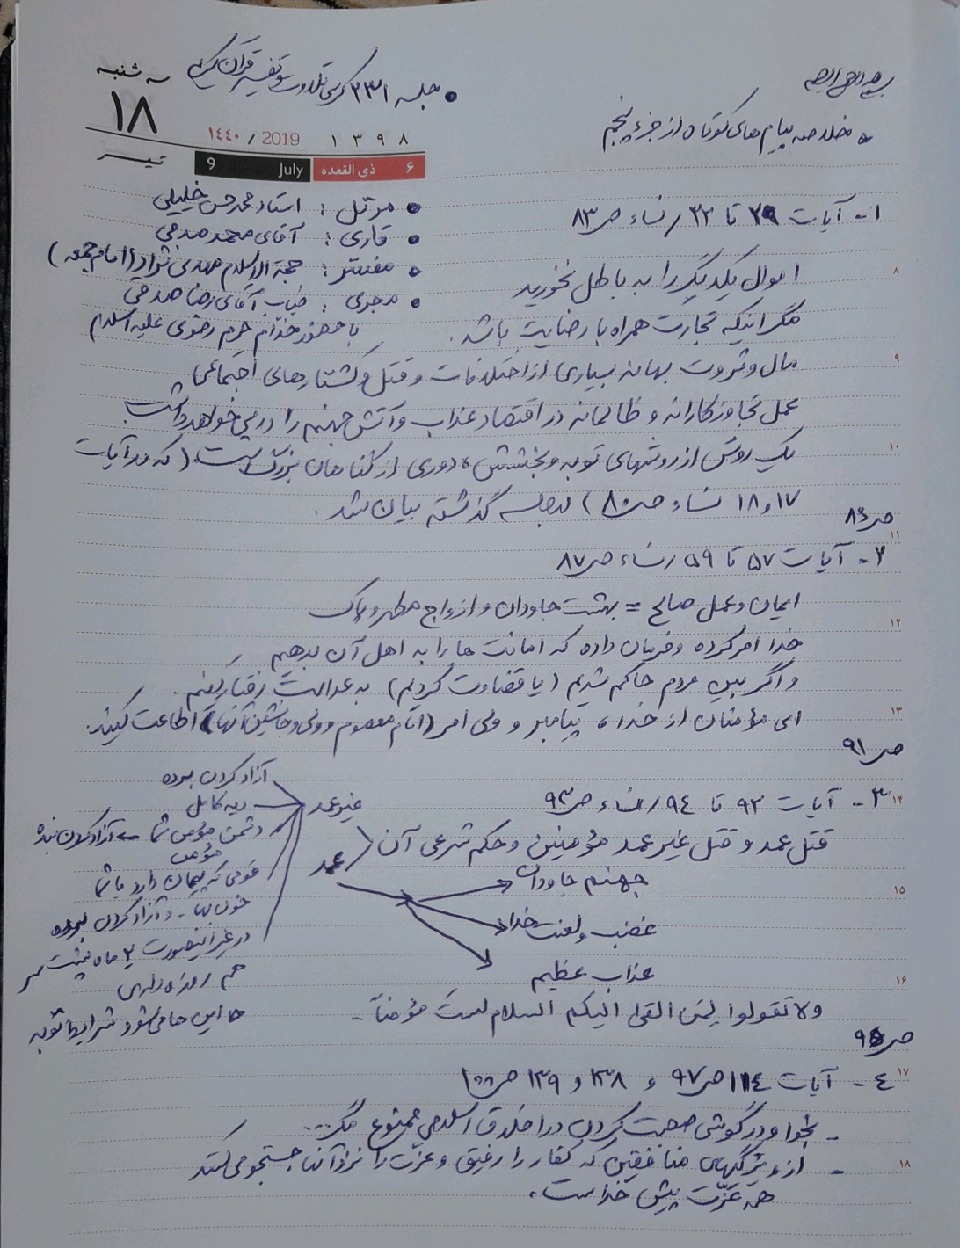 بسم الله الرحمن الرحیم
• جلسه ۲۳۱ کرسی تلاوت و تفسیر قرآن کریم
سه شنبه
۱۸
تیر
۱۴۴۰ / 2019
۱۳۹۸
9 July
۶ ذی القعده
• خلاصه پیام های کوتاه از جزء پنجم
• مرتل : استاد محمد حسن خلیلی
• قاری : آقای محمد صدقی
• مفسر : حجة الاسلام مهدی نژاد (امام جمعه)
• مجری : جناب آقای رضا صدقی
با حضور خدام حرم رضوی علیه السلام
۱- آیات ۲۹ تا ۳۲ / نساء ص ۸۳
اموال یکدیگر را به باطل نخورید
مگر اینکه تجارت همراه با رضایت باشد.
مال و ثروت بهانه بسیاری از اختلافات و قتل و کشتارهای اجتماعی
عمل تجاوزکارانه و ظالمانه در اقتصاد عذاب و آتش جهنم را در پی خواهد داشت
یک روش از روشهای توبه و بخشش، دوری از گناهان بزرگ است (که در آیات
۱۷ و ۱۸ نساء ص ۸۰) در جلسه گذشته بیان شد.
ص ۸۶
۲- آیات ۵۷ تا ۵۹ / نساء ص ۸۷
ایمان و عمل صالح = بهشت جاودان و ازواج مطهر و پاک
خدا امر کرده و فرمان داده که امانت ها را به اهل آن بدهیم
و اگر بین مردم حاکم شدیم (یا قضاوت کردیم) به عدالت رفتار کنیم.
ای مؤمنان از خدا، پیامبر و ولی امر (امام معصوم و ولی و جانشین آنها) اطاعت کنید.
ص ۹۱
۳- آیات ۹۲ تا ۹۴ / نساء ص ۹۳
قتل عمد و قتل غیر عمد مؤمنین و حکم شرعی آن
غیر عمد
آزاد کردن برده
دیه کامل
دشمن مؤمن شما ← آزاد کردن برده
مؤمن
قومی که پیمان دارد با شما
خون بها - و آزاد کردن برده
در غیر اینصورت ۲ ماه پشت سر
هم روزه داری
ها این ها می شود شرایط توبه
عمد
جهنم جاودان
غضب و لعنت خدا
عذاب عظیم
ولا تقولوا لمن القی الیکم السلام لست مؤمناً -
ص ۹۵
۴- آیات ۱۱۴ ص ۹۷ و ۱۳۸ و ۱۳۹ ص ۱۰۰
- نجوا و درگوشی صحبت کردن در اخلاق اسلامی ممنوع مگر...
- از ویژگیهای منافقین که کفار را رفیق و عزت را نزد آنها جستجو می کنند
همه عزت پیش خداست.
۸
۹
۱۰
۱۱
۱۲
۱۳
۱۴
۱۵
۱۶
۱۷
۱۸